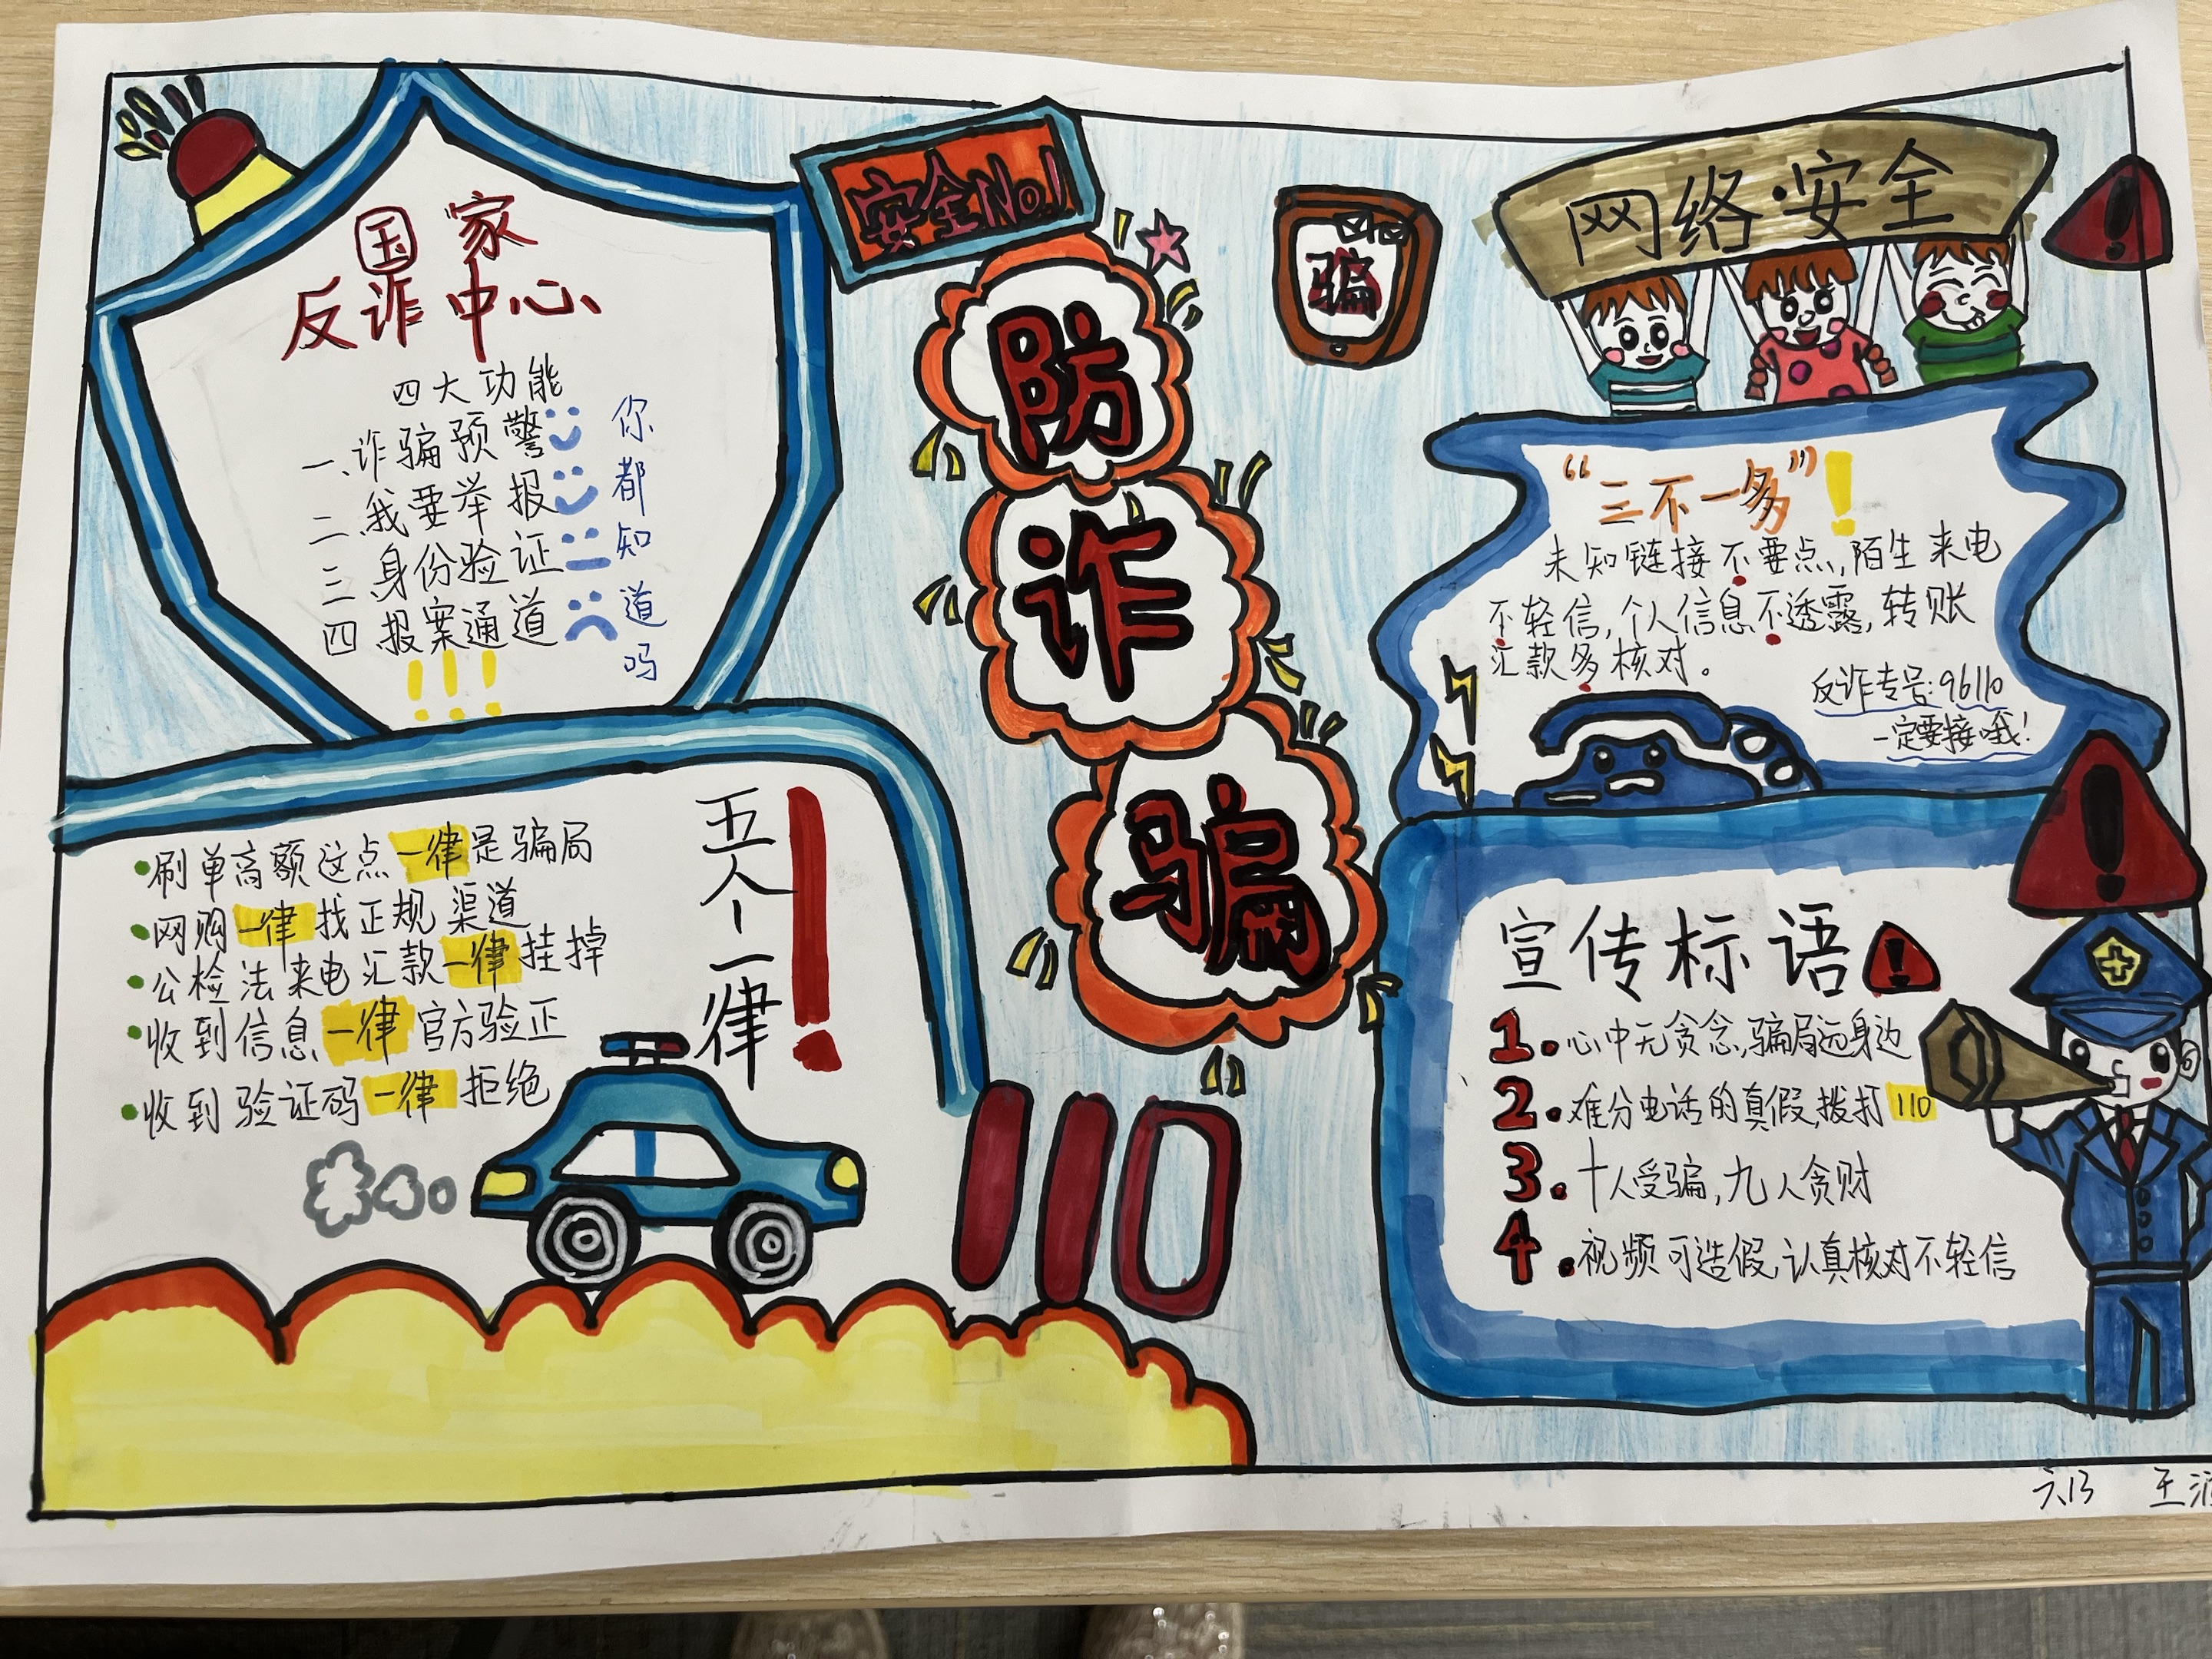 国家
反诈中心
四大功能
一、诈骗预警
二、我要举报
三、身份验证
四、报案通道
!!!
你都知道吗
安全No.1
防诈骗
骗
网络安全
“三不一多”!
未知链接不要点,陌生来电
不轻信,个人信息不透露,转账
汇款多核对。
反诈专号:96110
一定要接哦!
五个一律!
•刷单高额这点一律是骗局
•网购一律找正规渠道
•公检法来电汇款一律挂掉
•收到信息一律官方验正
•收到验证码一律拒绝
110
宣传标语
1.心中无贪念,骗局远身边
2.难分电话的真假,拨打110
3.十人受骗,九人贪财
4.视频可造假,认真核对不轻信
六13 王